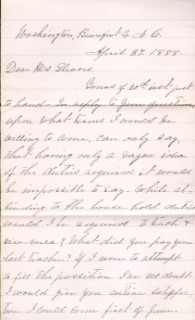 Washington, Beaufort Co. N.C.
April 3rd. 1888.
Dear Mrs
Yours of 20th inst. just
to hand. In reply to your question
upon what terms I would be
willing to come, can only say,
that having only a vague idea
of the duties required it would
be impossible to say. While at-
tending to the house hold duties
would I be required to teach &
sew &c? What did you pay your
last teacher? If I were to attempt
to fill the possition I've no doubt
I would give you entire satisfac-
tion. I could come first of June.